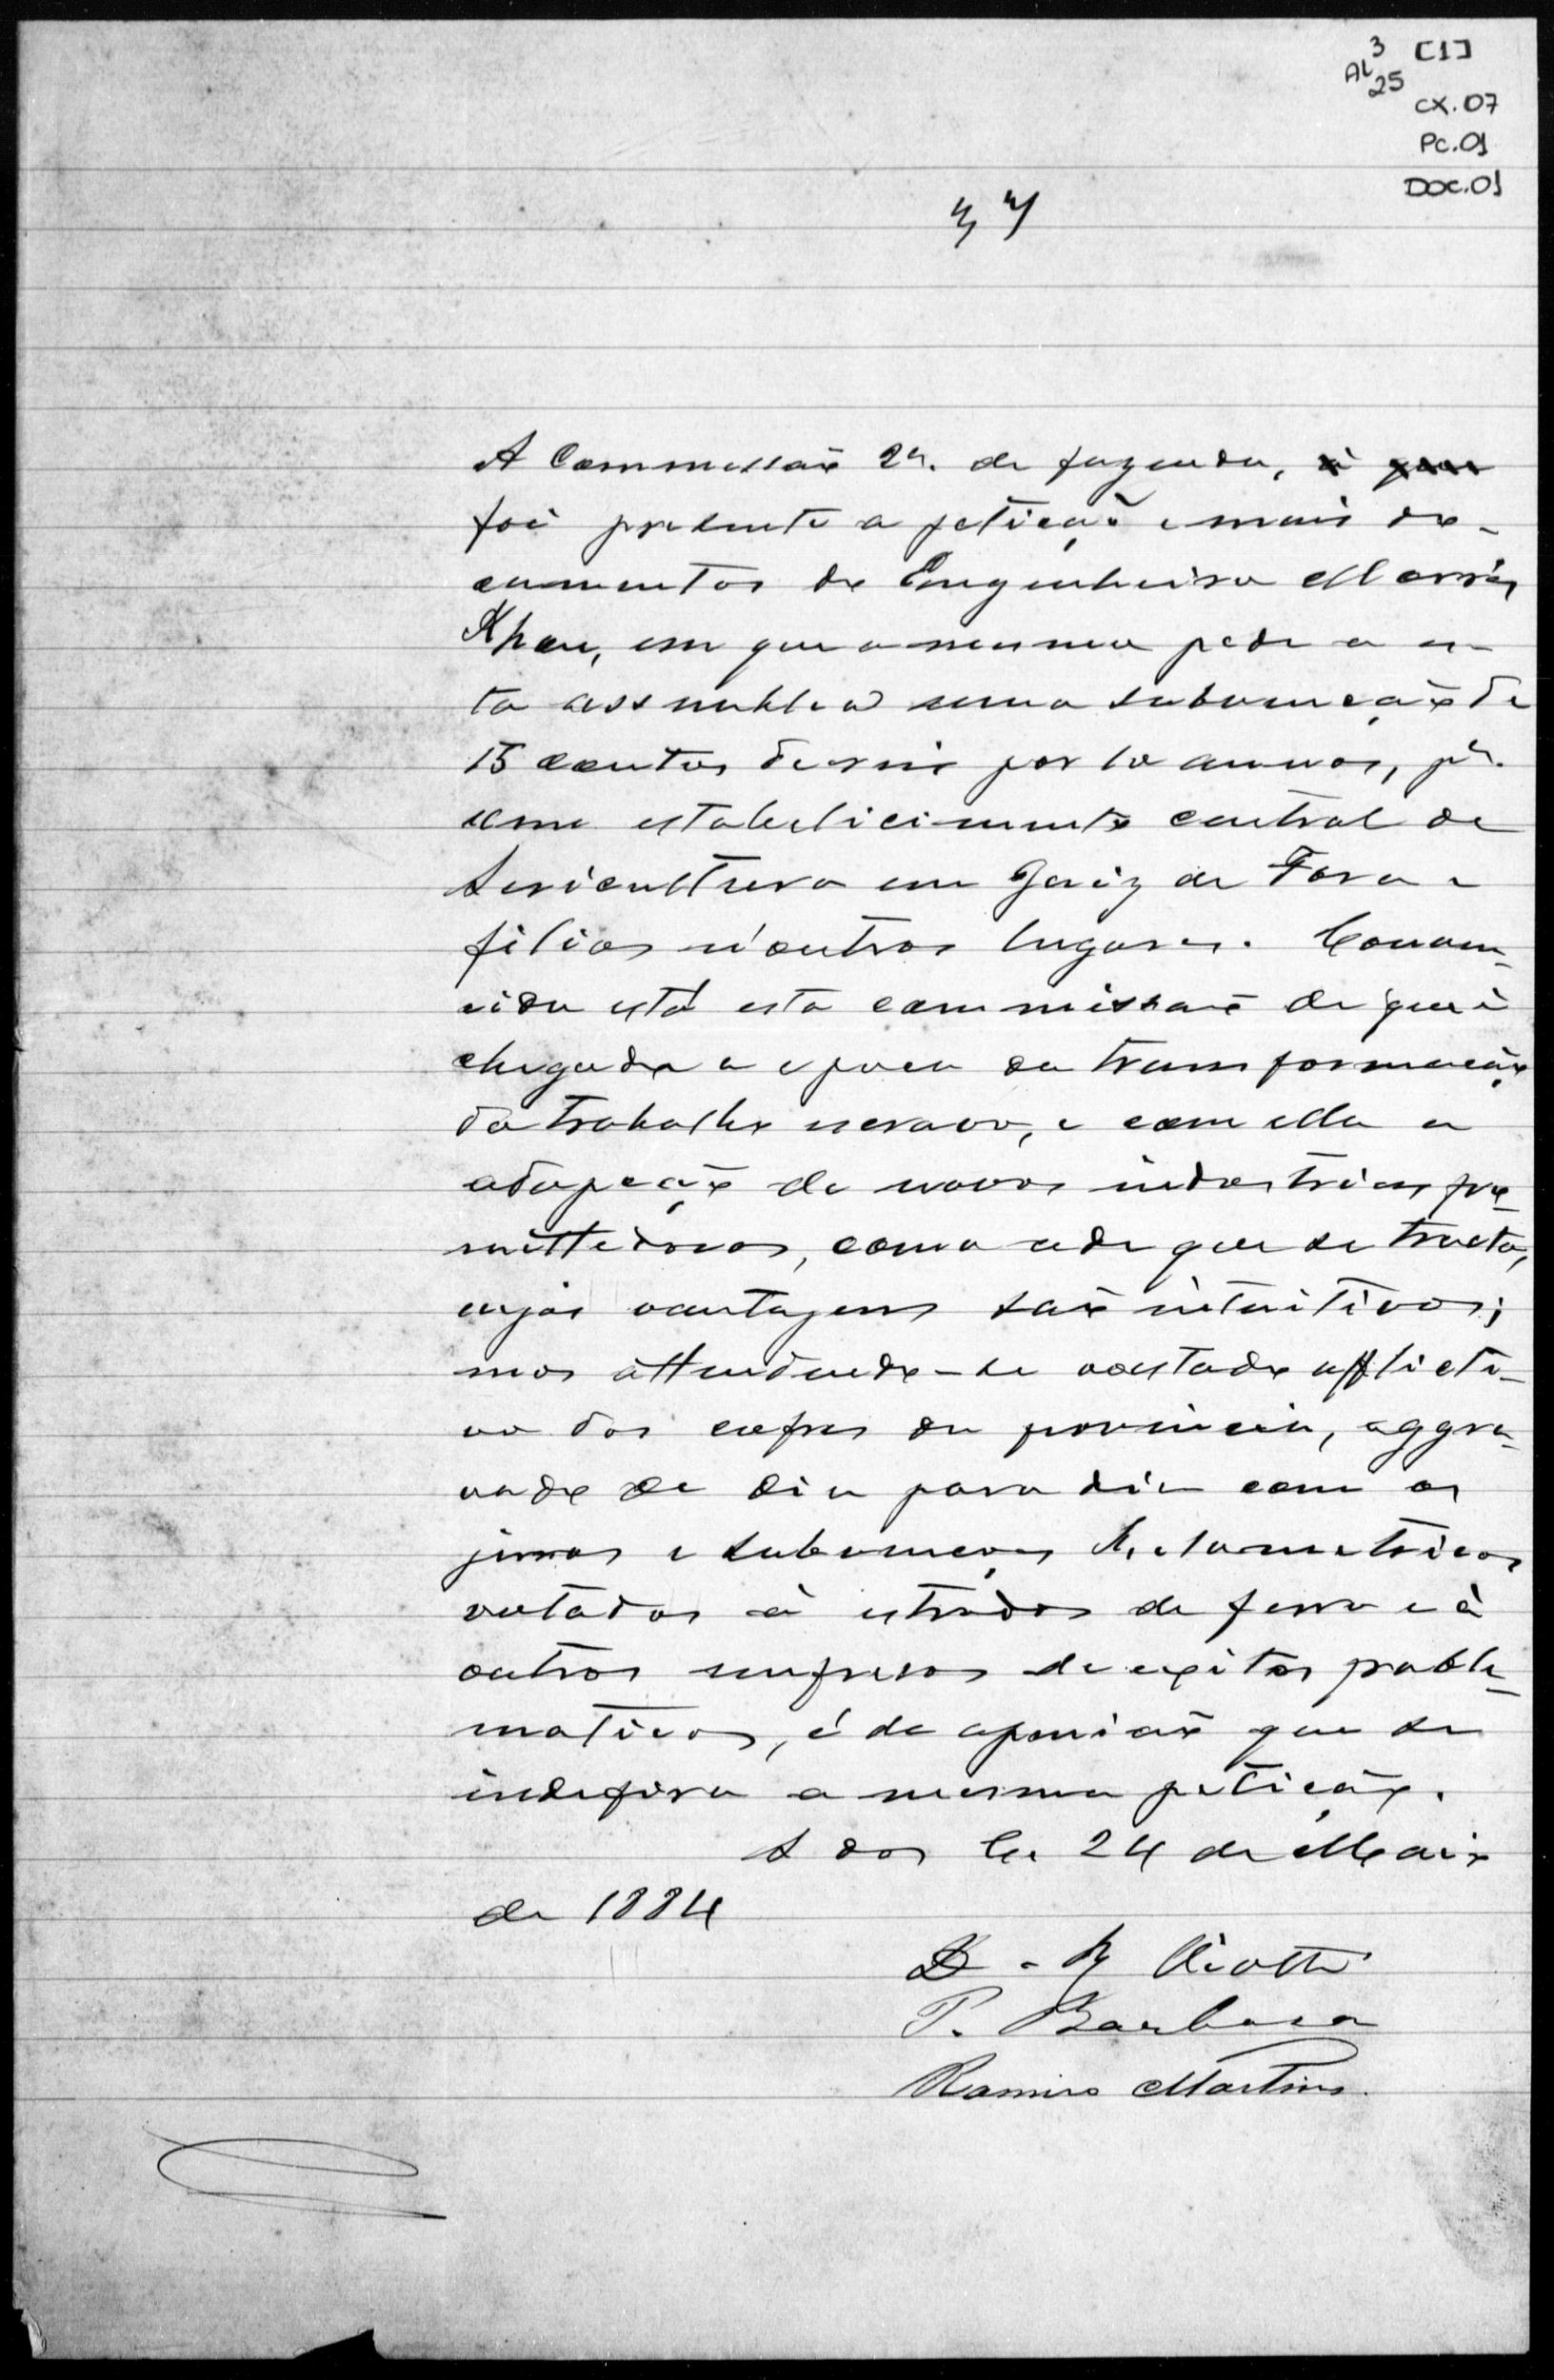 AL 3 25 [1]
CX.07
PC.01
DOC.01
A Commissaõ 2ª. de fazenda,
foi presente a petiçaõ e mais do-
cumentos do Engenheiro Morris
Khon, em que o mesmo pede a es-
ta assemblea uma subvençaõ de
15 contos de reis por 10 annos, pª.
um estabelicimento central de
Sericultura em Juiz de Fora e
filias n'outros lugares. Conven-
cida está esta commissaõ de que é
chegada a epoca da transformaçaõ
do trabalho escravo, e com ella a
adopçaõ de novas industrias pro-
mittedoras, como a de que se tracta,
cujas vantagens saõ intuitivas;
mas attendendo-se o estado afflicti-
vo dos cofres da provincia, aggra-
vado de dia para dia com os
juros e subvenções kilometricas
votados á estradas de ferro e á
outras empresas de exitos proble-
maticos, é de opiniaõ que se
indefira a mesma petiçaõ.
S das C. 24 de Maio
de 1884
Viotti
P. Barbosa
Ramiro Martins.